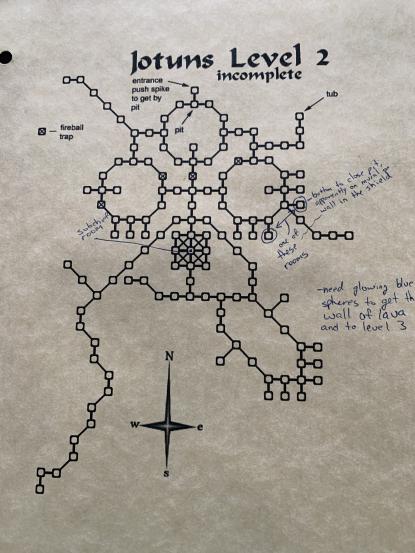 Jotuns Level 2
incomplete
entrance
push spike
to get by
pit
pit
tub
fireball
trap
button to close pit,
apparently on mural
wall in the shield
one of
these
rooms
room
-need glowing blue
spheres to get th
wall of lava
and to level 3
N
w
e
s